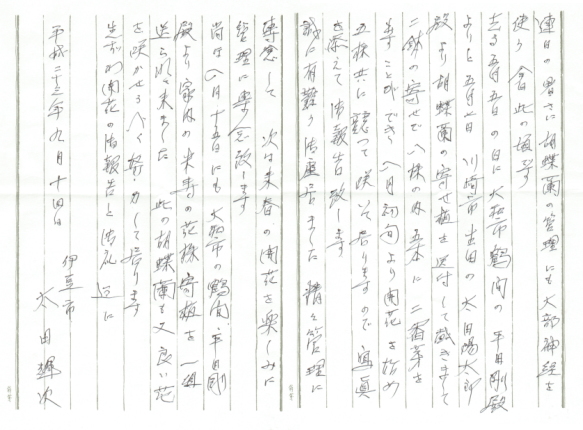 連日の暑さに胡蝶蘭の管理にも大部神経を
使う今日此の頃です
去る五月五日の日に大和市鶴間の平田剛殿
よりと五月七日川崎市生田の太田陽太郎
殿より胡蝶蘭の寄せ植を送付して戴きまして
二鉢の寄せで八株の内五本に二番茎を
出すことができ八月初旬より開花を始め
五株共に競って咲いて居りますので写真
を添えて御報告致します
誠に有難う御座居ました 精々管理に
専念して 次は来春の開花を楽しみに
管理に専念致します
尚は八月十五日にも大和市の鶴間平田剛
殿より家内の米寿の花株寄植を一組
送られて来ました 此の胡蝶蘭も又良い花
を咲かせるべく努力して居ります
先ずは開花の御報告と御礼迄に
平成二十三年九月十四日
伊豆市
太田